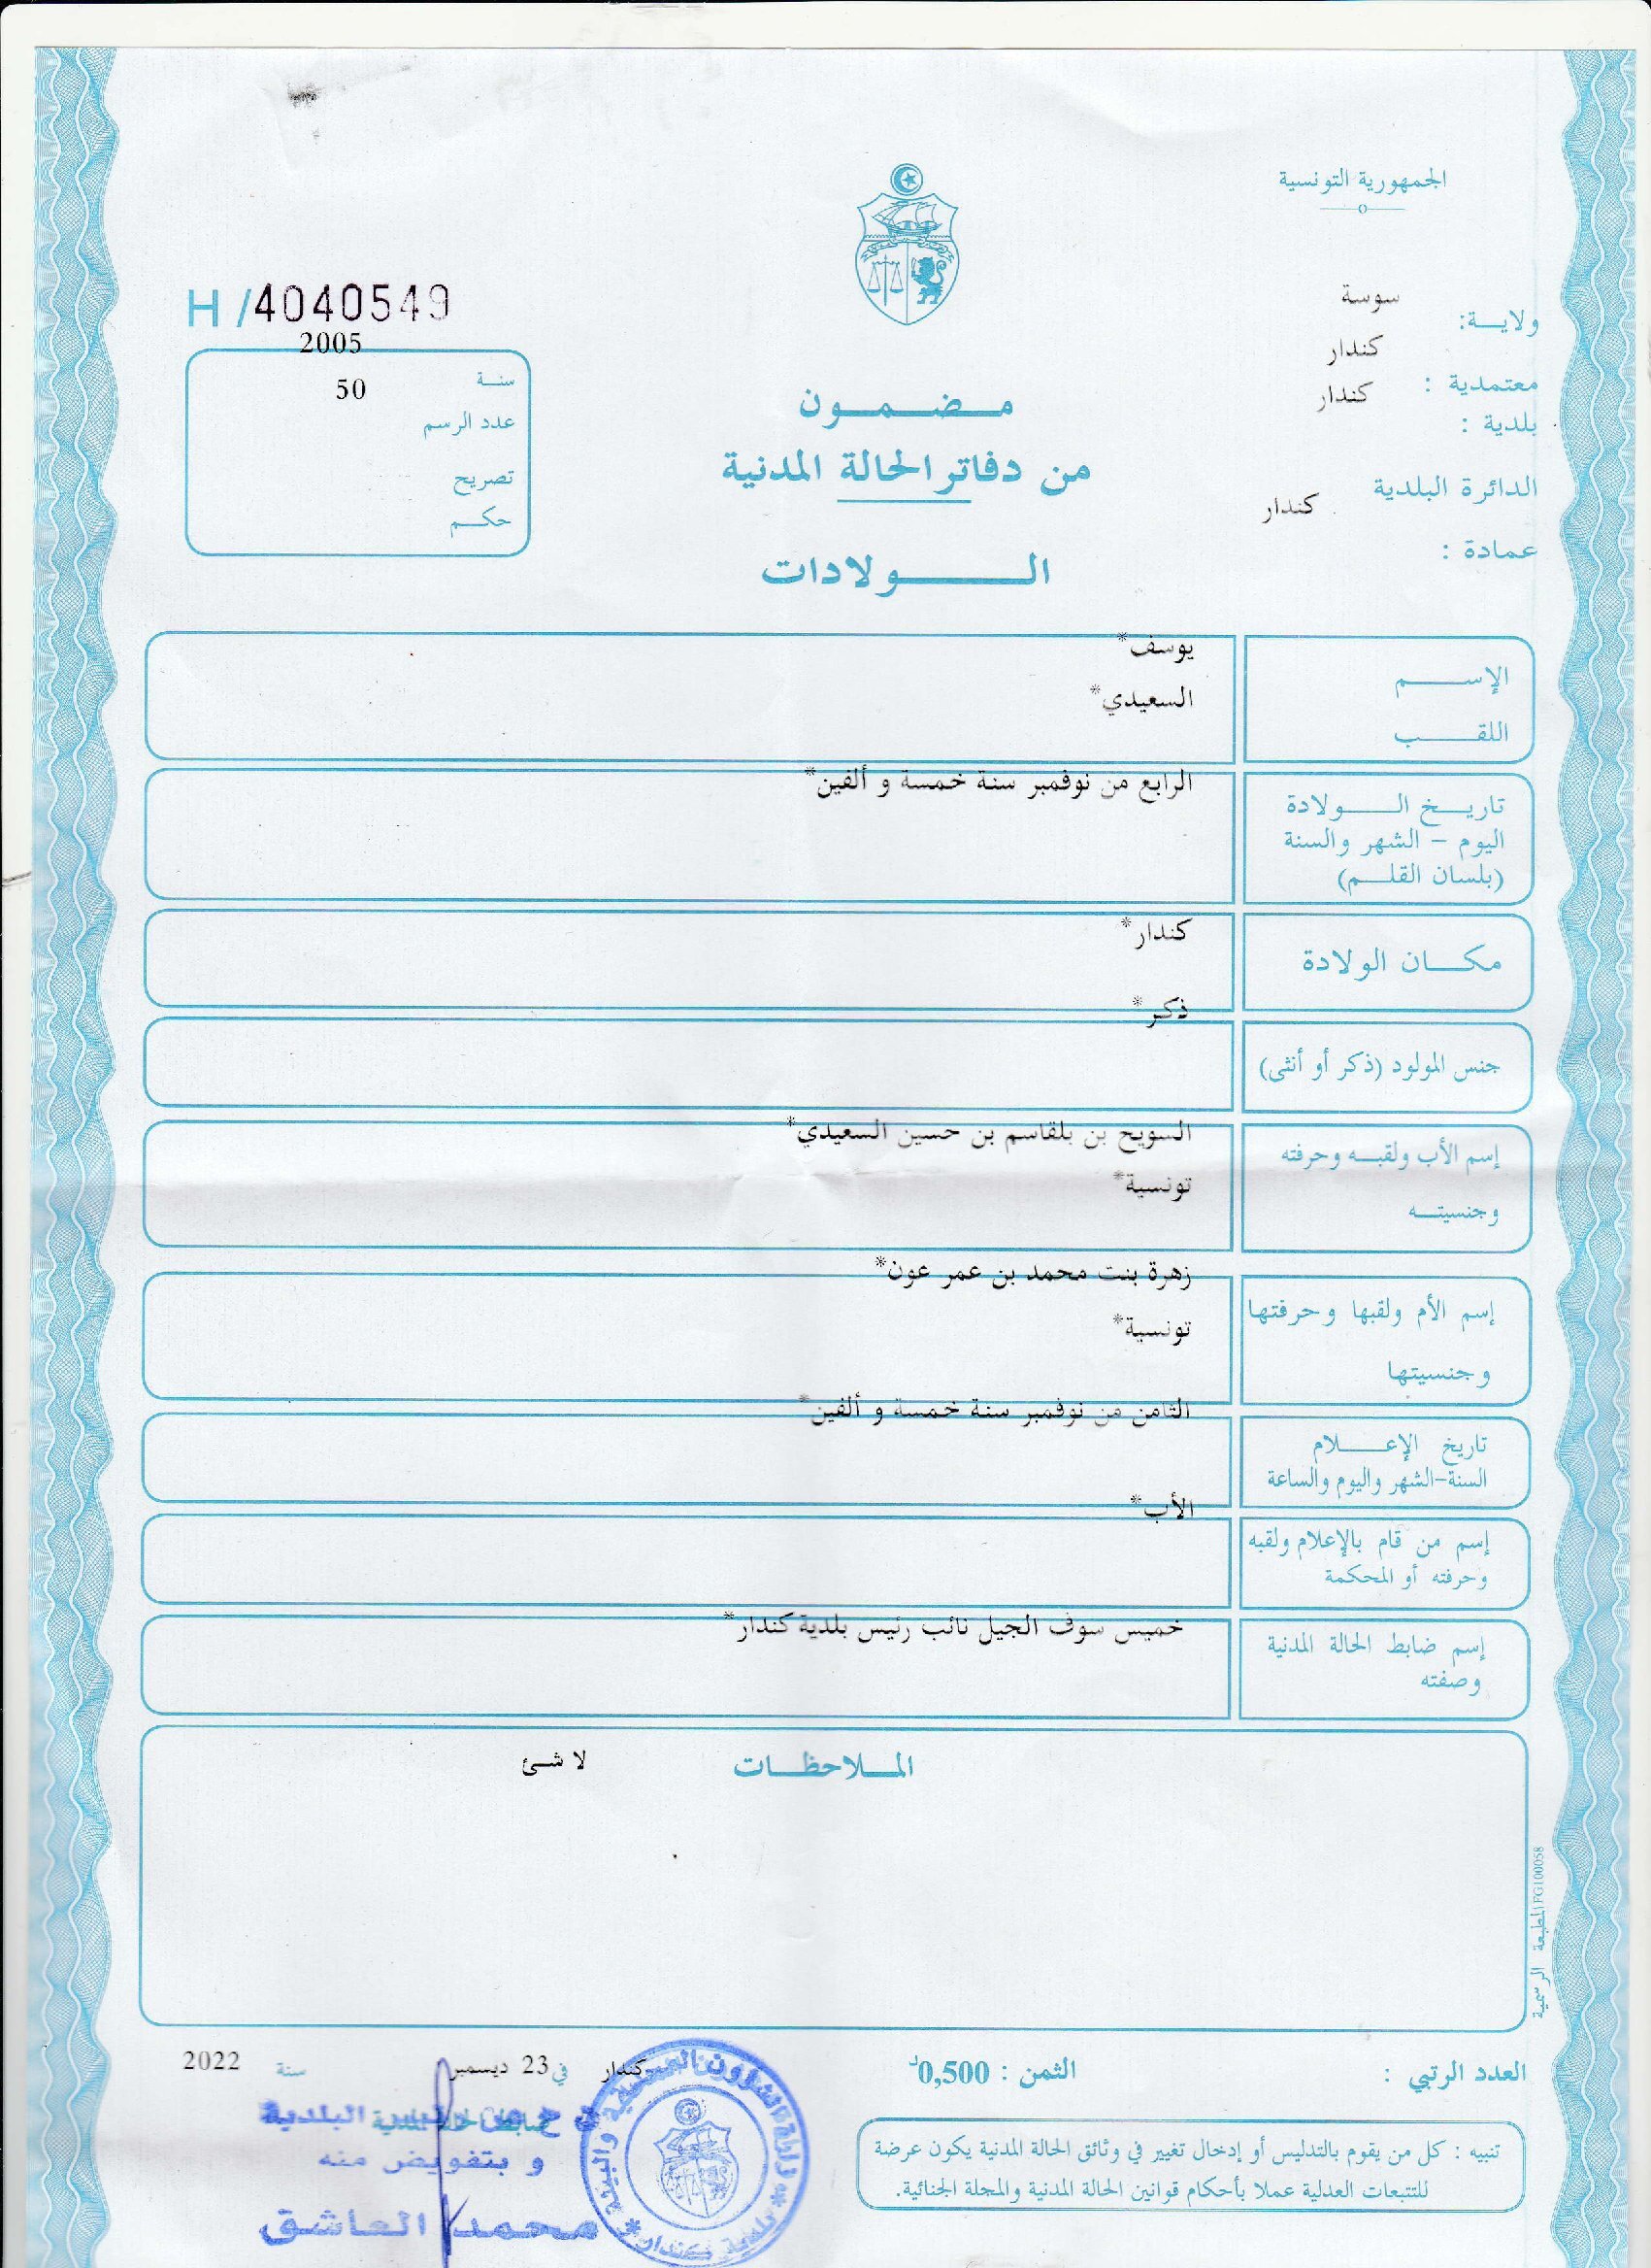 الجمهورية التونسية
ولايــة: سوسة
معتمدية : كندار
بلدية : كندار
الدائرة البلدية كندار
عمادة :
H/4040549
سنة 2005
عدد الرسم 50
تصريح
حكم
مضمون
من دفاتر الحالة المدنية
الولادات
الإسم يوسف*
اللقب السعيدي*
تاريخ الولادة الرابع من نوفمبر سنة خمسة و ألفين*
اليوم – الشهر والسنة
(بلسان القلم)
مكان الولادة كندار*
جنس المولود (ذكر أو أنثى) ذكر*
إسم الأب ولقبه وحرفته السويح بن بلقاسم بن حسين السعيدي*
وجنسيته تونسية*
إسم الأم ولقبها وحرفتها زهرة بنت محمد بن عمر عون*
وجنسيتها تونسية*
تاريخ الإعلام الثامن من نوفمبر سنة خمسة و ألفين*
السنة-الشهر واليوم والساعة
إسم من قام بالإعلام ولقبه الأب*
وحرفته أو المحكمة
إسم ضابط الحالة المدنية خميس سوف الجيل نائب رئيس بلدية كندار*
وصفته
الملاحظات لا شئ
المطبعة الرسمية FG100058
العدد الرتبي : الثمن : 0,500د
كندار في 23 ديسمبر سنة 2022
ضابط الحالة المدنية
البلدية
و بتفويض منه
محمد العاشق
بلدية كندار
تنبيه : كل من يقوم بالتدليس أو إدخال تغيير في وثائق الحالة المدنية يكون عرضة
للتتبعات العدلية عملا بأحكام قوانين الحالة المدنية والمجلة الجنائية.